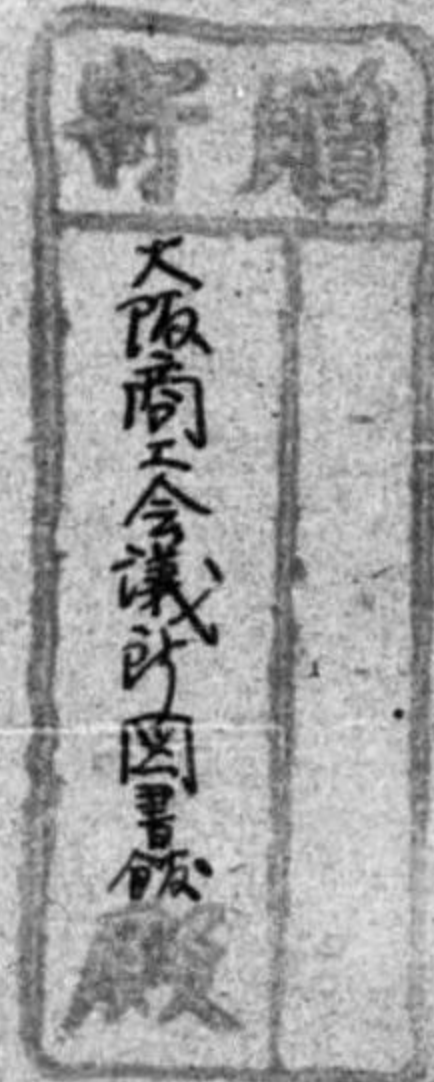 寄贈
大阪商工会議所図書館殿